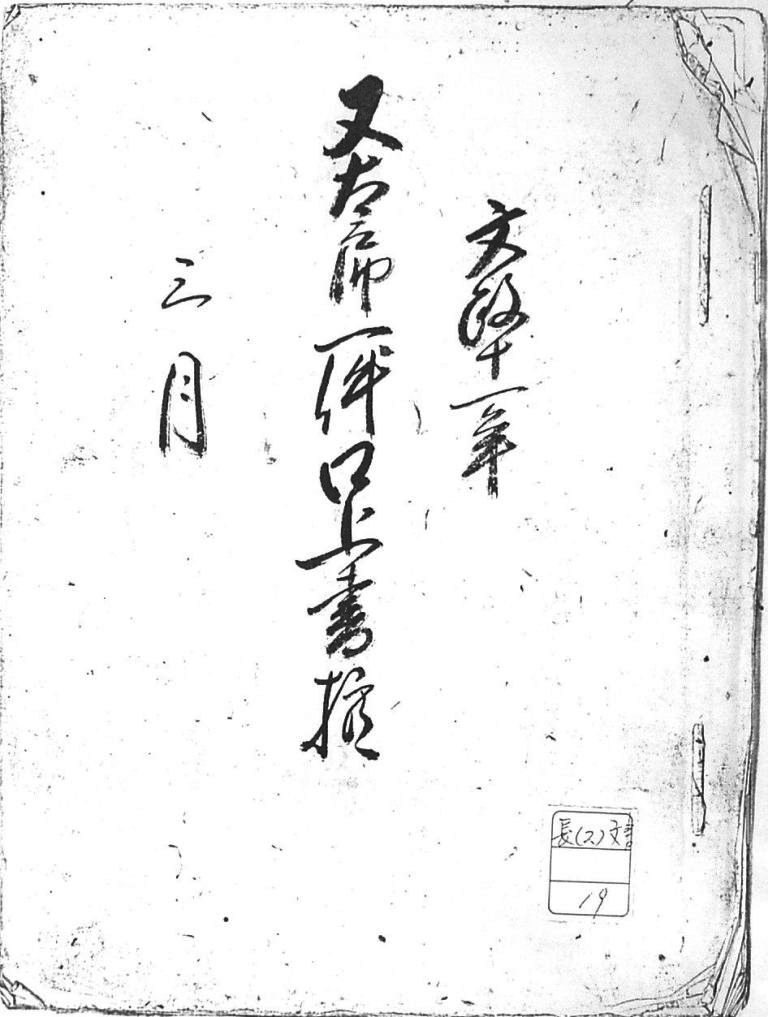 文政十一年
又右衛門一件口上書控
三月
長(ス)文書
19